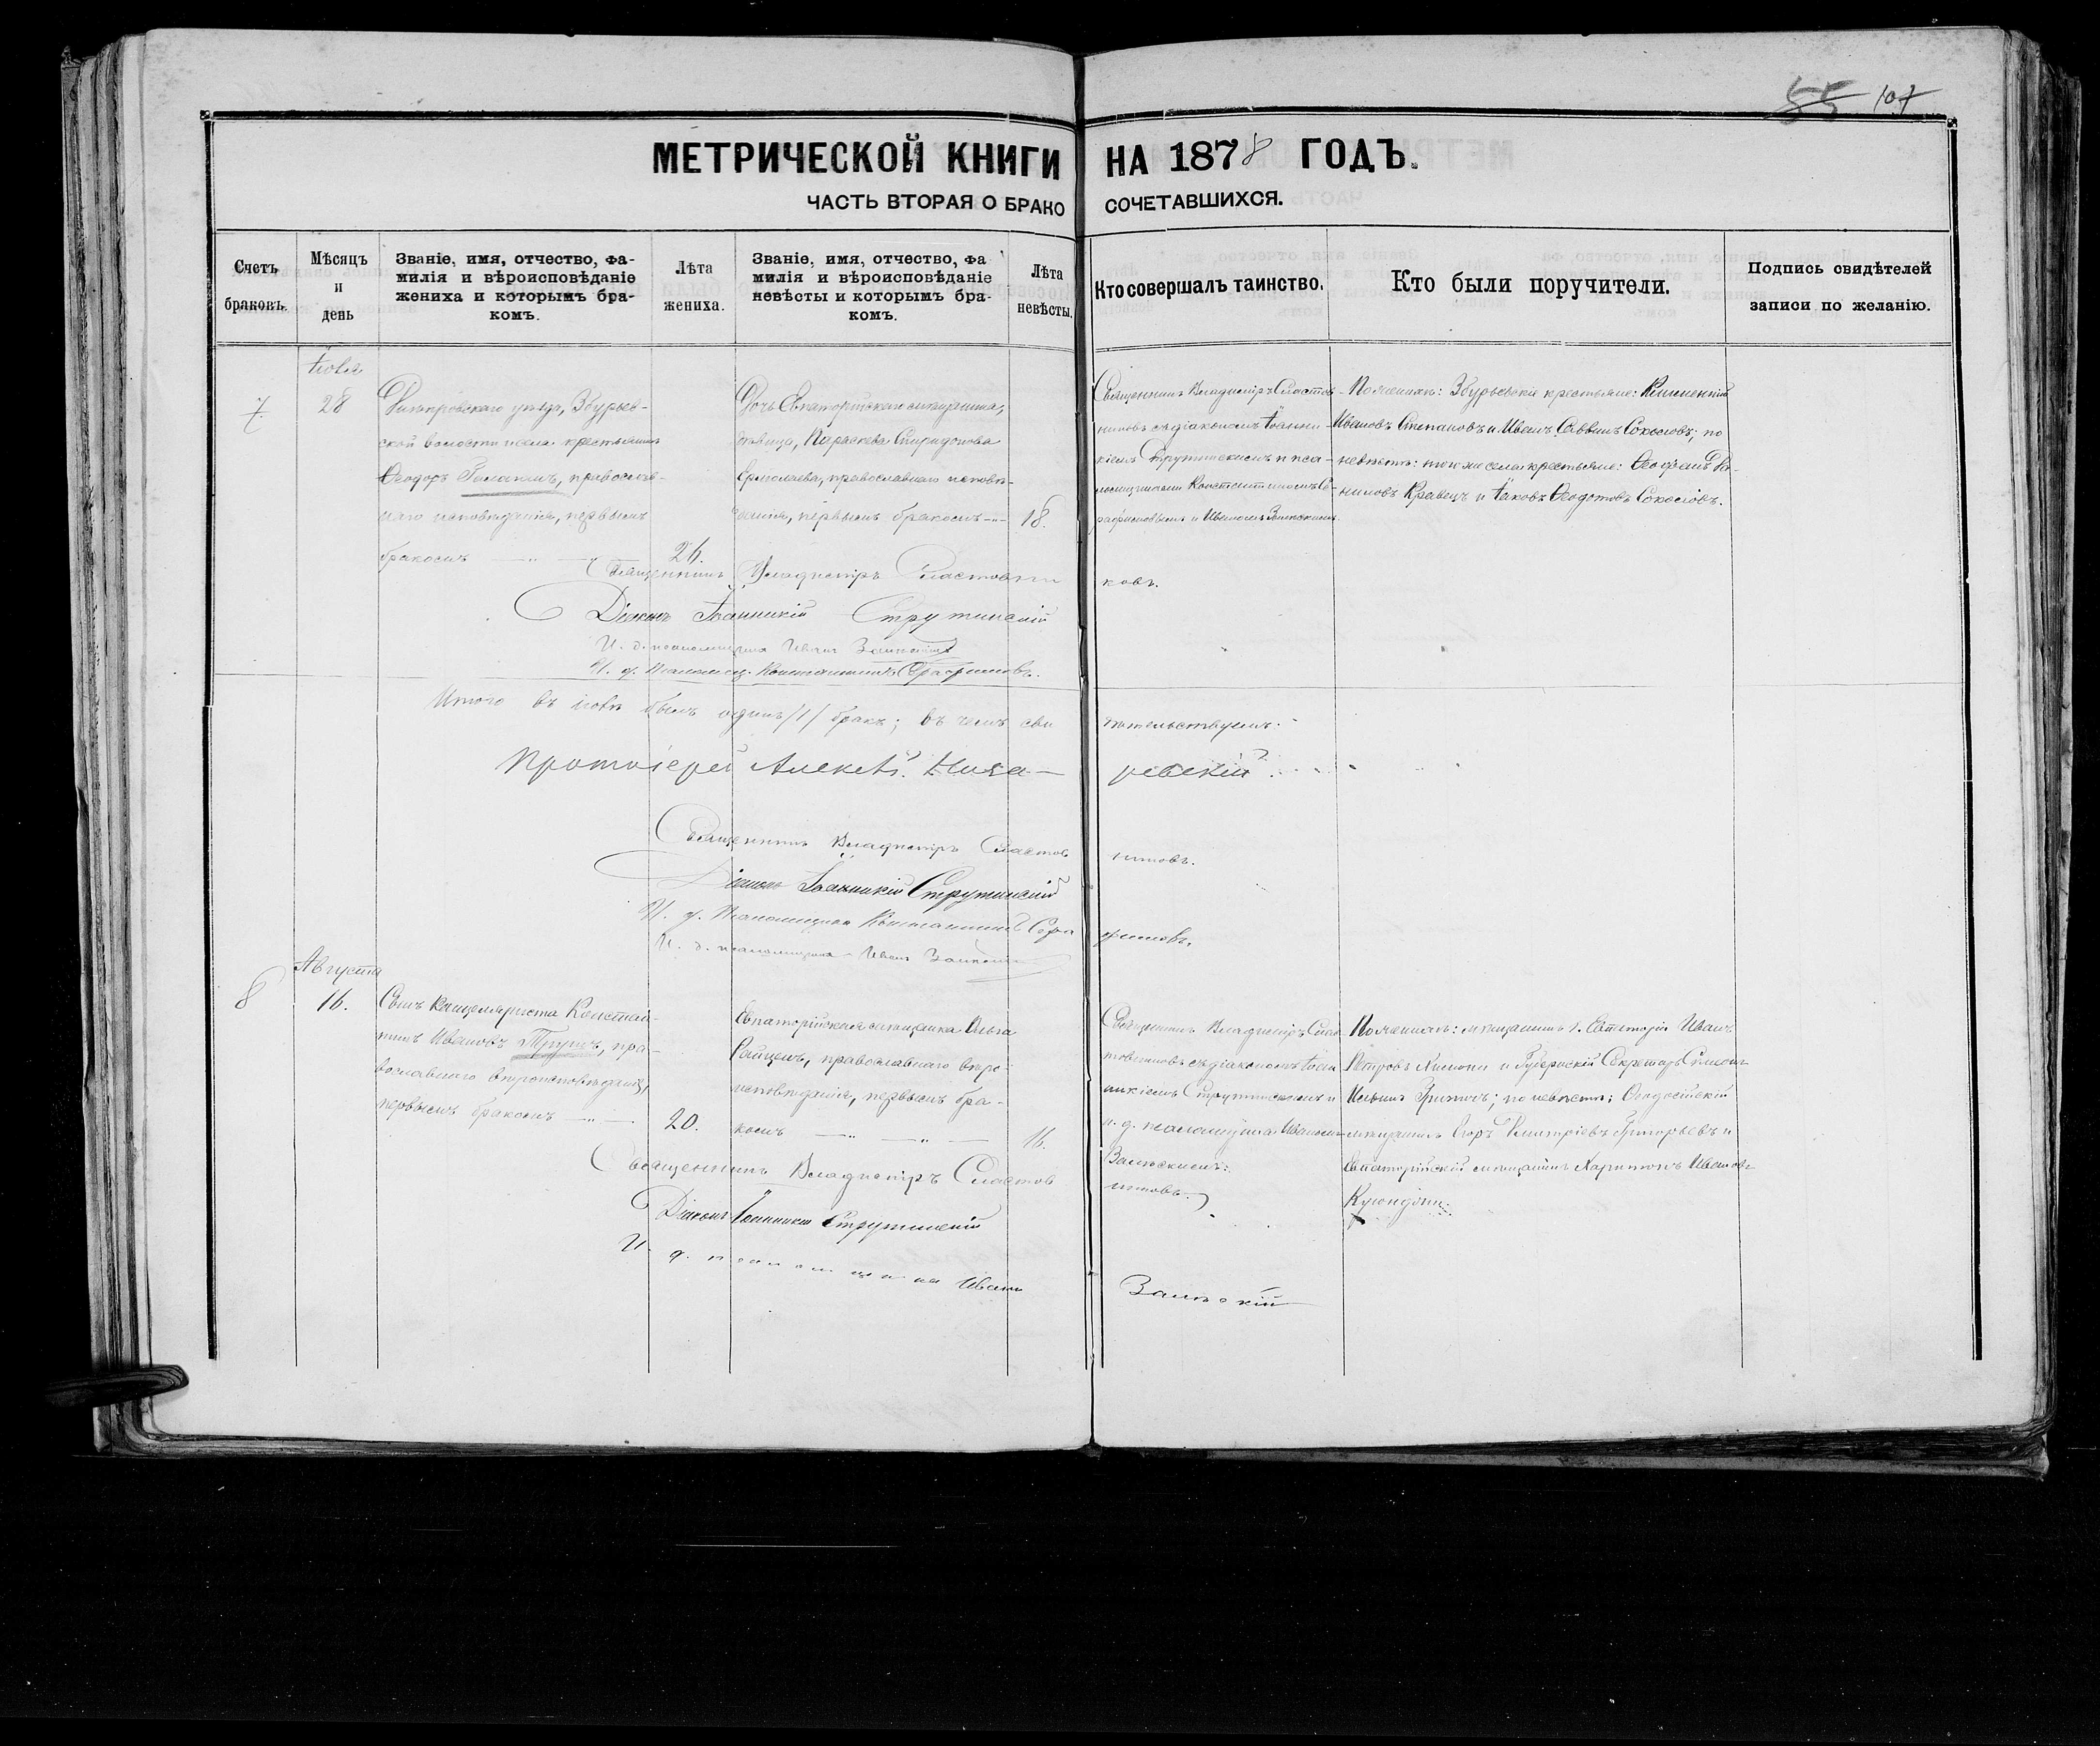 55 107
МЕТРИЧЕСКОЙ КНИГИ НА 1878 ГОДЪ.
ЧАСТЬ ВТОРАЯ О БРАКО СОЧЕТАВШИХСЯ.
Счетъ браковъ.
Мѣсяцъ и день
Званіе, имя, отчество, фа-
милія и вѣроисповѣданіе
жениха и которымъ бра-
комъ.
Лѣта жениха.
Званіе, имя, отчество, фа
милія и вѣроисповѣданіе
невѣсты и которымъ бра-
комъ.
Лѣта невѣсты.
Кто совершалъ таинство.
Кто были поручители.
Подпись свидѣтелей
записи по желанію.
7.
28
Днѣпровскаго уѣзда, Збурьев-
ской волости и села крестьянинъ
Ѳеодоръ православ-
наго исповѣданія, первымъ
бракомъ
26.
Дочь Евпаторійскаго мѣщанина,
дѣвица, Параскева Спиридонова
Ермолаева, православнаго исповѣ-
данія, первымъ бракомъ
18.
Священникъ Владиміръ Сластов-
никовъ съ діакономъ Іоанни-
кіемъ Струтинскимъ и пса-
ломщиками Константиномъ Се-
рафимовымъ и Иваномъ
По женихѣ: Збурьевскіе крестьяне:
Ивановъ Степановъ и Иванъ Саввинъ Соколовъ; по
невѣстѣ: того же села крестьяне: Ѳеофанъ Да-
ниловъ Кравецъ и Іаковъ Ѳеодотовъ Соколовъ.
Священникъ Владиміръ Сластовни ковъ.
Діаконъ Іоанникій Струтинскій
И. д. псаломщика Иванъ
И. д. псаломщ. Константинъ Серафимовъ.
Итого въ былъ одинъ /1/ бракъ; въ чемъ сви дѣтельствуемъ:
Протоіерей Алексѣй
Священникъ Владиміръ Сластов никовъ.
Діаконъ Іоанникій Струтинскій
И. д. псаломщика Константинъ Сера фимовъ.
И. д. псаломщика Иванъ
Августа
8
16.
Сынъ канцеляриста Констан-
тинъ Ивановъ Трушъ, пра-
вославнаго вѣроисповѣданія,
первымъ бракомъ
20.
Евпаторійская мѣщанка Ольга
православнаго вѣро-
исповѣданія, первымъ бра-
комъ
16.
Священникъ Владиміръ Слас
товниковъ съ діакономъ Іоан
никіемъ Струтинскимъ и
и. д. псаломщика Иваномъ
По женихѣ: мѣщанинъ г. Евпаторіи Иванъ
Петровъ и Губернскій Секретарь Симеонъ
Ильинъ по невѣстѣ: Ѳеодосійскій
мѣщанинъ Егоръ Дмитріевъ Григорьевъ и
Евпаторійскій мѣщанинъ Харитонъ Ивановъ
Священникъ Владиміръ Сластов никовъ.
Діаконъ Іоанникій Струтинскій
И. д. псаломщика Иванъ